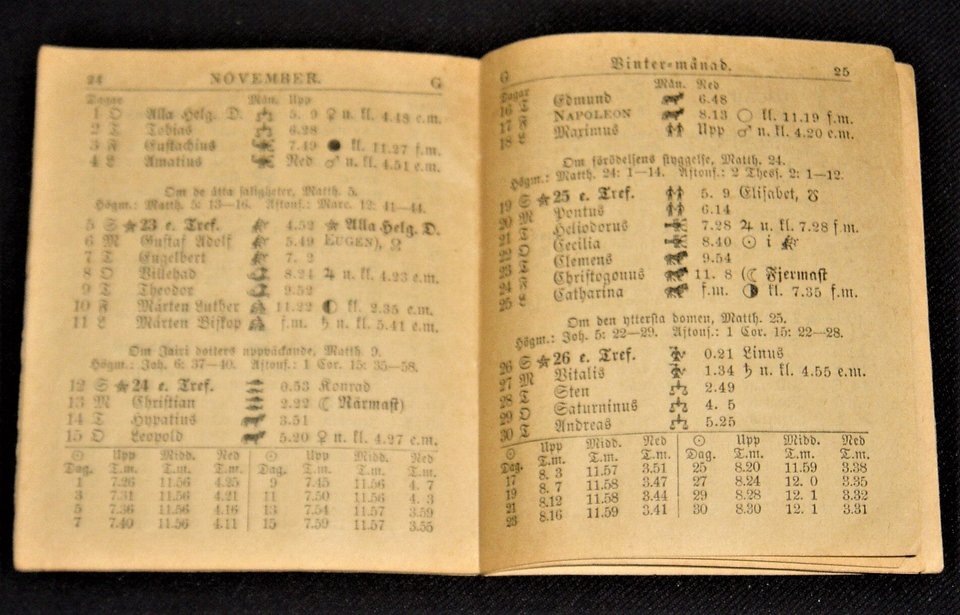 24 NOVEMBER. G
Dagar Mån. Upp
1 O Alla Helg. D. 5. 9 ♀ n. kl. 4.48 e.m.
2 T Tobias 6.28
3 F Eustachius 7.49 ● kl. 11.27 f.m.
4 L Amatius Ned ♂ n. kl. 4.51 e.m.
Om de åtta saligheter, Matth. 5.
Högm.: Matth. 5: 13—16. Aftons.: Marc. 12: 41—44.
5 S ★ 23 e. Tref. 4.52 ★ Alla Helg. D.
6 M Gustaf Adolf 5.49 EUGEN), ☊
7 T Engelbert 7. 2
8 O Villehad 8.24 ♃ n. kl. 4.23 e.m.
9 T Theodor 9.52
10 F Mårten Luther 11.22 ◐ kl. 2.35 e.m.
11 L Mårten Biskop f.m. ♄ n. kl. 5.41 e.m.
Om Jairi dotters uppväckande, Matth. 9.
Högm.: Joh. 6: 37—40. Aftons.: 1 Cor. 15: 35—58.
12 S ★ 24 e. Tref. 0.53 Konrad
13 M Christian 2.22 ☾ Närmast)
14 T Hypatius 3.51
15 O Leopold 5.20 ♀ n. kl. 4.27 e.m.
☉ Upp Midd. Ned ☉ Upp Midd. Ned
Dag. T.m. T.m. T.m. Dag. T.m. T.m. T.m.
1 7.26 11.56 4.25 9 7.45 11.56 4. 7
3 7.31 11.56 4.21 11 7.50 11.56 4. 3
5 7.36 11.56 4.16 13 7.54 11.57 3.59
7 7.40 11.56 4.11 15 7.59 11.57 3.55
G Vinter-månad. 25
Dagar Mån. Ned
16 T Edmund 6.48
17 F NAPOLEON 8.13 ○ kl. 11.19 f.m.
18 L Maximus Upp ♂ n. kl. 4.20 e.m.
Om förödelsens styggelse, Matth. 24.
Högm.: Matth. 24: 1—14. Aftons.: 2 Thess. 2: 1—12.
19 S ★ 25 e. Tref. 5. 9 Elisabet, ☋
20 M Pontus 6.14
21 T Heliodorus 7.28 ♃ n. kl. 7.28 f.m.
22 O Cecilia 8.40 ☉ i
23 T Clemens 9.54
24 F Chrisogonus 11. 8 (☾ Fjermast
25 L Catharina f.m. ◑ kl. 7.35 f.m.
Om den yttersta domen, Matth. 25.
Högm.: Joh. 5: 22—29. Aftons.: 1 Cor. 15: 22—28.
26 S ★ 26 e. Tref. 0.21 Linus
27 M Vitalis 1.34 ♄ n. kl. 4.55 e.m.
28 T Sten 2.49
29 O Saturninus 4. 5
30 T Andreas 5.25
☉ Upp Midd. Ned ☉ Upp Midd. Ned
Dag. T.m. T.m. T.m. Dag. T.m. T.m. T.m.
17 8. 3 11.57 3.51 25 8.20 11.59 3.38
19 8. 7 11.58 3.47 27 8.24 12. 0 3.35
21 8.12 11.58 3.44 29 8.28 12. 1 3.32
23 8.16 11.59 3.41 30 8.30 12. 1 3.31